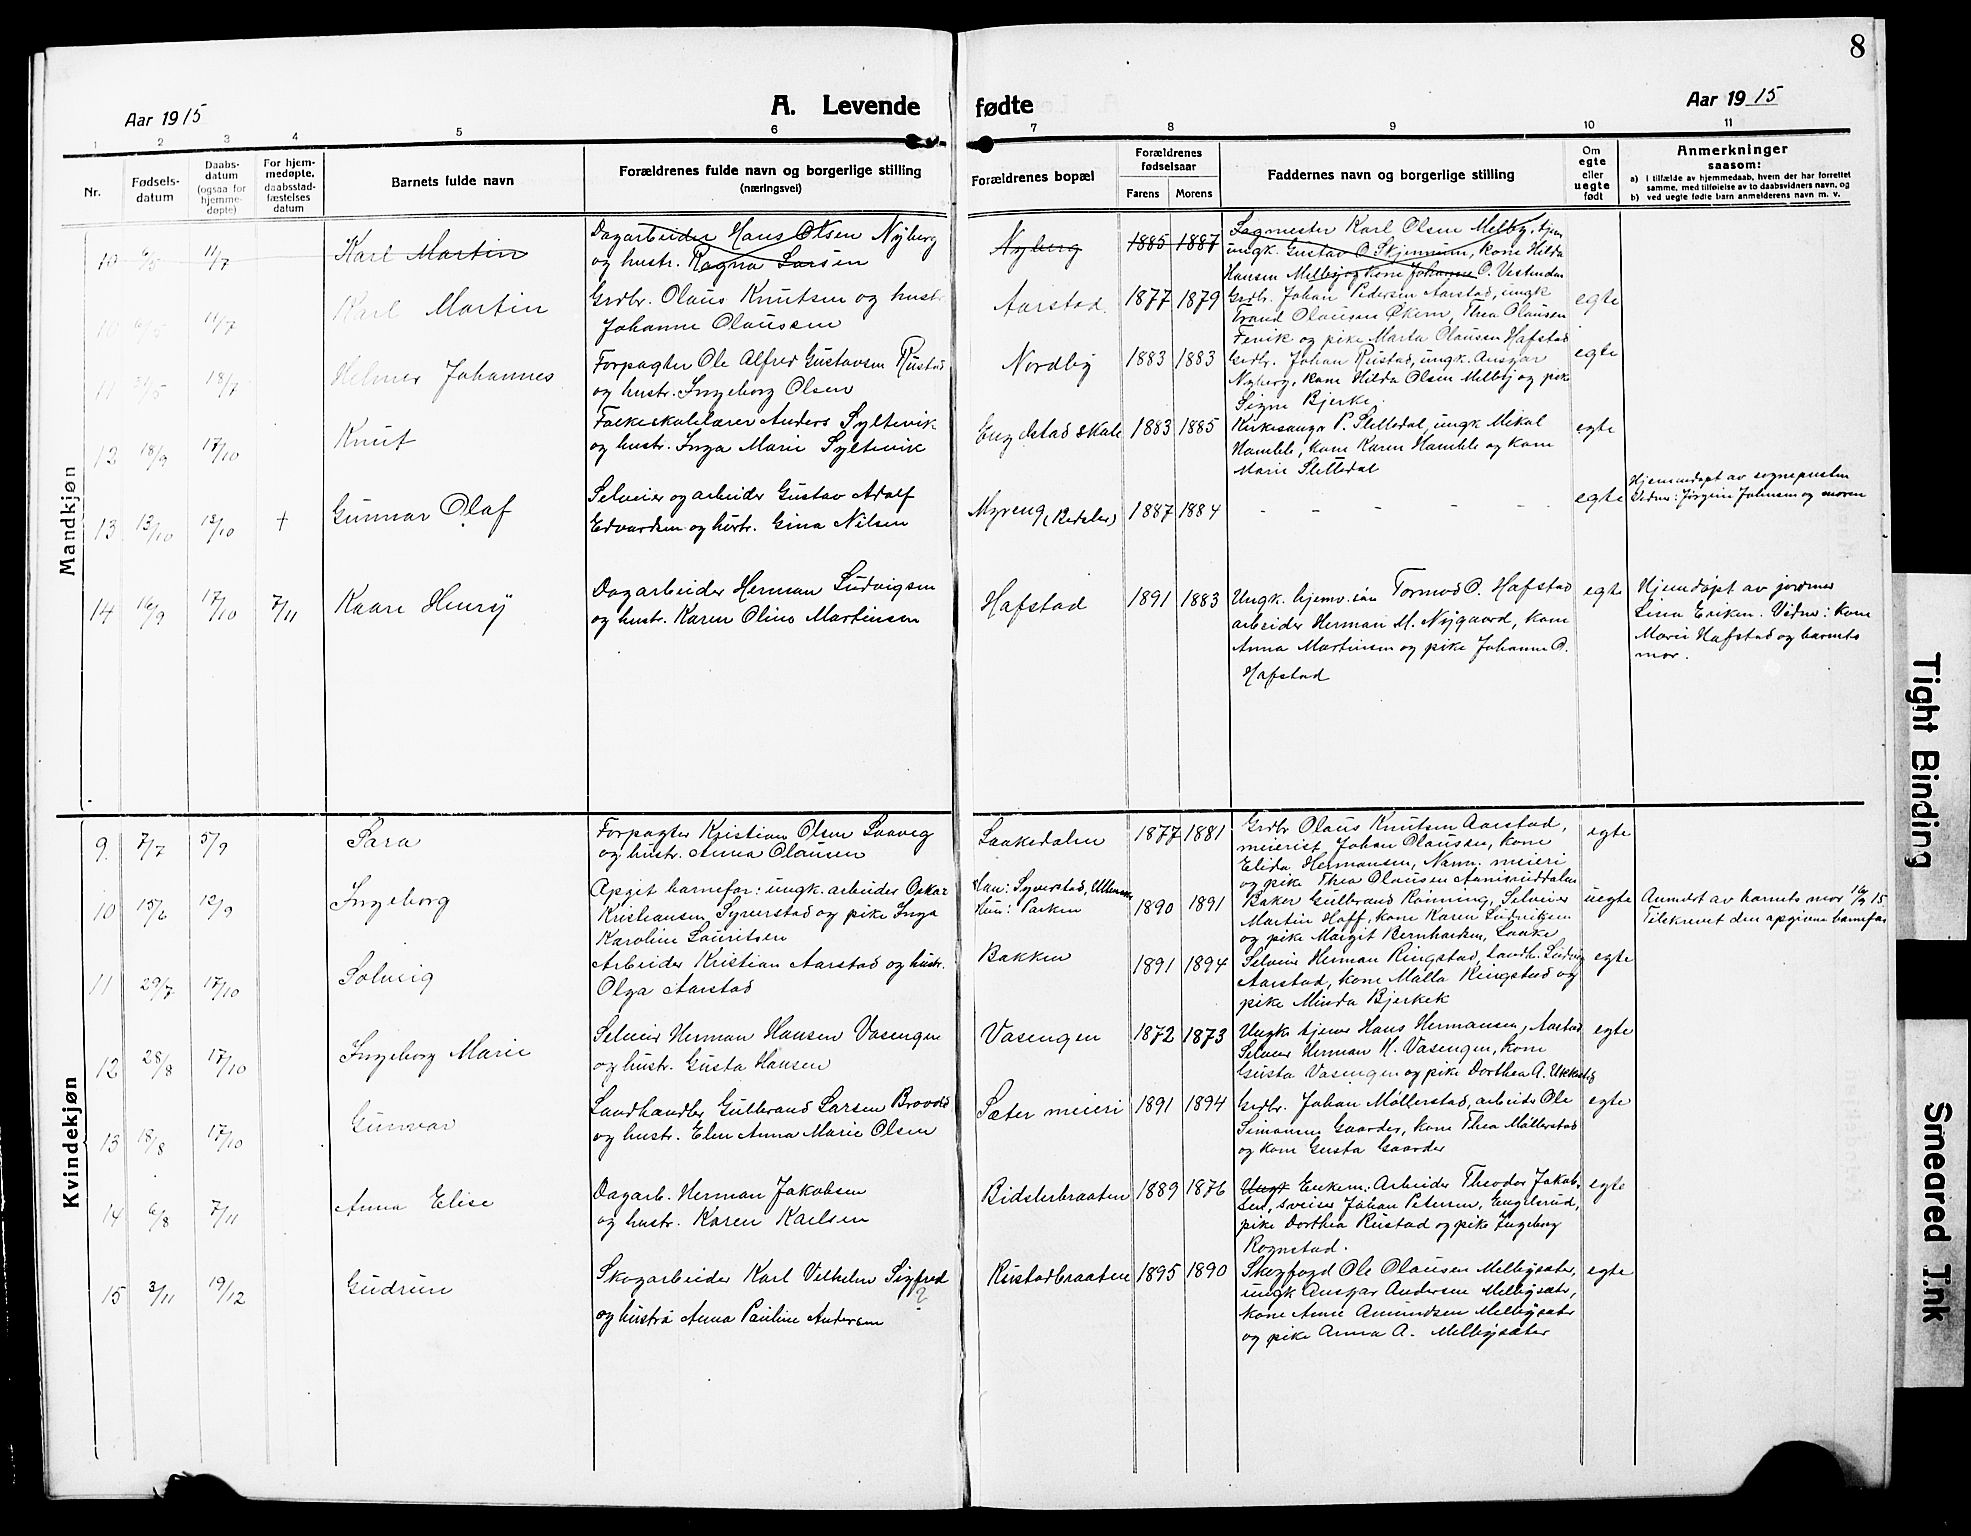 8
Aar 1915
A. Levende fødte
Aar 1915
1 2 3 4 5 6 7 8 9 10 11
Nr.
Fødsels-
datum
Daabs-
datum
(ogsaa for
hjemme-
døpte)
For hjem-
medøpte,
daabsstad-
fæstelses
datum
Barnets fulde navn
Forældrenes fulde navn og borgerlige stilling
(næringsvei)
Forældrenes bopæl
Forældrenes
fødselsaar
Farens Morens
Faddernes navn og borgerlige stilling
Om
egte
eller
uegte
født
Anmerkninger
saasom:
a) i tilfælde av hjemmedaab, hvem der har forrettet
samme, med tilføielse av to daabsvidners navn, og
b) ved uegte fødte barn anmelderens navn m. v.
Mandkjøn
10 6/5 11/7 Karl Martin
Dagarbeider Hans Olsen Nyberg
og hustr. Ragna Larsen
Nyberg 1885 1887
Sagmester Karl Olsen Melby, tjen
ungk. Gustav O. Skjennum, kone Hilda
Hansen Melby og kone Johanne O. Vestenden
10 6/5 11/7 Karl Martin
Grdbr. Olaus Knutsen og hustr.
Johanne Olaussen
Aarstad. 1877 1879
Grdbr. Johan Pedersen Aarstad, ungk
Trand Olausen Økern, Thea Olausen
Fenik og pike Marta Olausen Hafstad
egte
11 18/7 Helmer Johannes
Forpagter Ole Alfred Gustavsen Rustad
og hustr. Ingeborg Olsen
Nordby 1883 1883
Grdbr. Johan Rustad, ungk. Ansgar
Nyberg, kone Hilda Olsen Melby og pike
Signe Bjerke.
egte
12 18/9 17/10 Knut
Folkeskolelærer Anders Syltevik
og hustr. Inga Marie Syltevik
Engelstad skole 1883 1885
Kirkesanger P. Slettedal, ungk Mikal
Hamble, kone Karen Hamble og kone
Marie Slettedal
egte
13 13/10 13/10 + Gunnar Olaf
Selveier og arbeider Gustav Adolf
Edvardsen og hustr. Gina Nilsen
Myreng 1887 1884
- - - - - -
egte
Hjemmedøpt av sognepresten
Vidner: Jørgine Johnsen og moren
14 16/9 17/10 7/11 Kaare Henry
Dagarbeider Herman Ludvigsen
og hustr. Karen Oline Martinsen
Hafstad 1891 1883
Ungk. hjemv. søn Tormod O. Hafstad
arbeider Herman M. Nygaard, kone
Anna Martinsen og pike Johanne O.
Hafstad
egte
Hjemdøpt av jordmor
Lina Eriksen. Vidner: kone
Marie Hafstad og barnets
mor.
Kvindekjøn
9. 7/7 5/9 Sara
Forpagter Kristian Olsen Saaveg
og hustr. Anna Olausen
Saakedalen 1877 1881
Grdbr Olaus Knutsen Aarstad,
meierist Johan Olaussen, kone
Elida Hermansen, Nann. meieri
og pike Thea Olausen
egte
10 15/6 12/9 Ingeborg
Opgit barnefar: ungk. arbeider Oskar
Kristiansen Syverstad og pike Inga
Karoline Lauritsen
Han: Syverstad, Ullensaker
Hun: Parken
1890 1891
Baker Gulbrand Rönning, Selveier
Martin Hoff, kone Karen Ludvigsen
og pike Margit Bernhardsen, Laake
uegte
Anmeldt av barnets mor 16/9 15
Tilskrevet den opgivne barnefar
11 29/7 17/10 Solveig
Arbeider Kristian Aarstad og hustr.
Olga Aarstad
Bakken 1891 1894
Selveier Herman Ringstad, Landh. Ludvig
Aarstad, kone Malla Ringstad og
pike Minda Bjerkek
egte
12 28/8 17/10 Ingeborg Marie
Selveier Herman Hansen Vasengen
og hustr. Gusta Hansen
Vasengen 1872 1873
Ungk tjener Hans Hermansen, Aastad
Selveier Herman H. Vasengen, kone
Gusta Vasengen og pike Dorthea A. Ukkestad
egte
13 18/8 17/10 Gunvor
Landhandler Gulbrand Larsen Brovold
og hustr. Elen Anna Marie Olsen
Sæter meieri 1891 1894
Grdbr. Johan Möllerstad, arbeider Ole
Simonsen Gaarder, kone Thea Möllerstad
og kone Gusta Gaarder
egte
14 6/8 7/11 Anna Elise
Dagarb. Herman Jakobsen
og hustr. Karen Karlsen
Bidslerbraaten 1889 1876
Ungk Enkem: Arbeider Theodor Jakob-
sen, sveiser Johan Petersen, Englerud,
pike Dorthea Rustad og pike Ingeborg
Rognstad.
egte
15 3/11 19/12 Gudrun
Skogarbeider Karl Vilhelm Sigfred
?
og hustru Anna Pauline Andersen
Rustadbraaten 1895 1890
Skogfogd Ole Olausen Melbysæter,
ungk Ansgar Andersen Melbysæter,
kone Anne Amundsen Melbysæter
og pike Anna A. Melbysæter
egte
Tight Binding
Smeared Ink